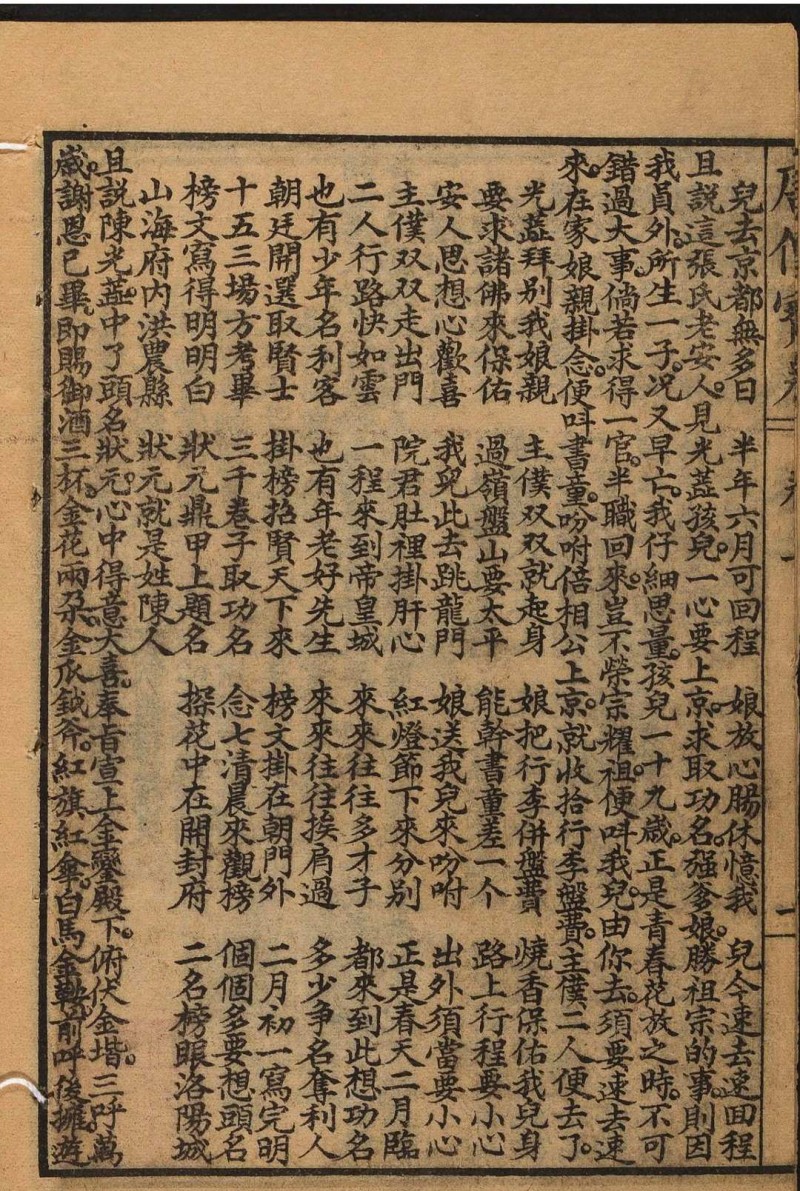 兒去京都無多日　半年六月可回程　娘放心腸休憶我　兒今速去速回程
且説這張氏老安人。見光蓋孩兒。一心要上京。求取功名。強爹娘。勝祖宗的事。則因
我員外。所生一子。况又早亡。我仔細思量。孩兒一十九歲。正是青春花放之時。不可
錯過大事。倘若求得一官。半職回來。豈不榮宗耀祖。便呌我兒。由你去。須要速去速
來。在家娘親掛念。便呌書童。吩咐倍相公上京。就收拾行李盤費。主僕二人便去了。
光蓋拜别我娘親　主僕双双就起身　娘把行李併盤費　燒香保佑我兒身
要求諸佛來保佑　過嶺盤山要太平　能幹書童差一个　路上行程要小心
安人思想心歡喜　我兒此去跳龍門　娘送我兒來吩咐　出外須當要小心
主僕双双走出門　院君肚裡掛肝心　紅燈節下來分别　正是春天二月臨
二人行路快如雲　一程來到帝皇城　來來往往多才子　都來到此想功名
也有少年名利客　也有年老好先生　來來往往挨肩過　多少争名奪利人
朝廷開選取賢士　掛榜招賢天下來　榜文掛在朝門外　二月初一寫完明
十五三場方考畢　三千卷子取功名　念七清晨來觀榜　個個多要想頭名
榜文寫得明明白　狀元鼎甲上題名　探花中在開封府　二名榜眼洛陽城
山海府内洪農縣　狀元就是姓陳人
且説陳光蓋。中了頭名狀元。心中得意大喜。奉旨宣上金鑾殿下。俯伏金堦。三呼萬
歲。謝恩已畢。即賜御酒三杯。金花兩朶。金瓜鉞斧。紅旗紅傘。白馬金鞍。前呼後擁。遊
卷一
二